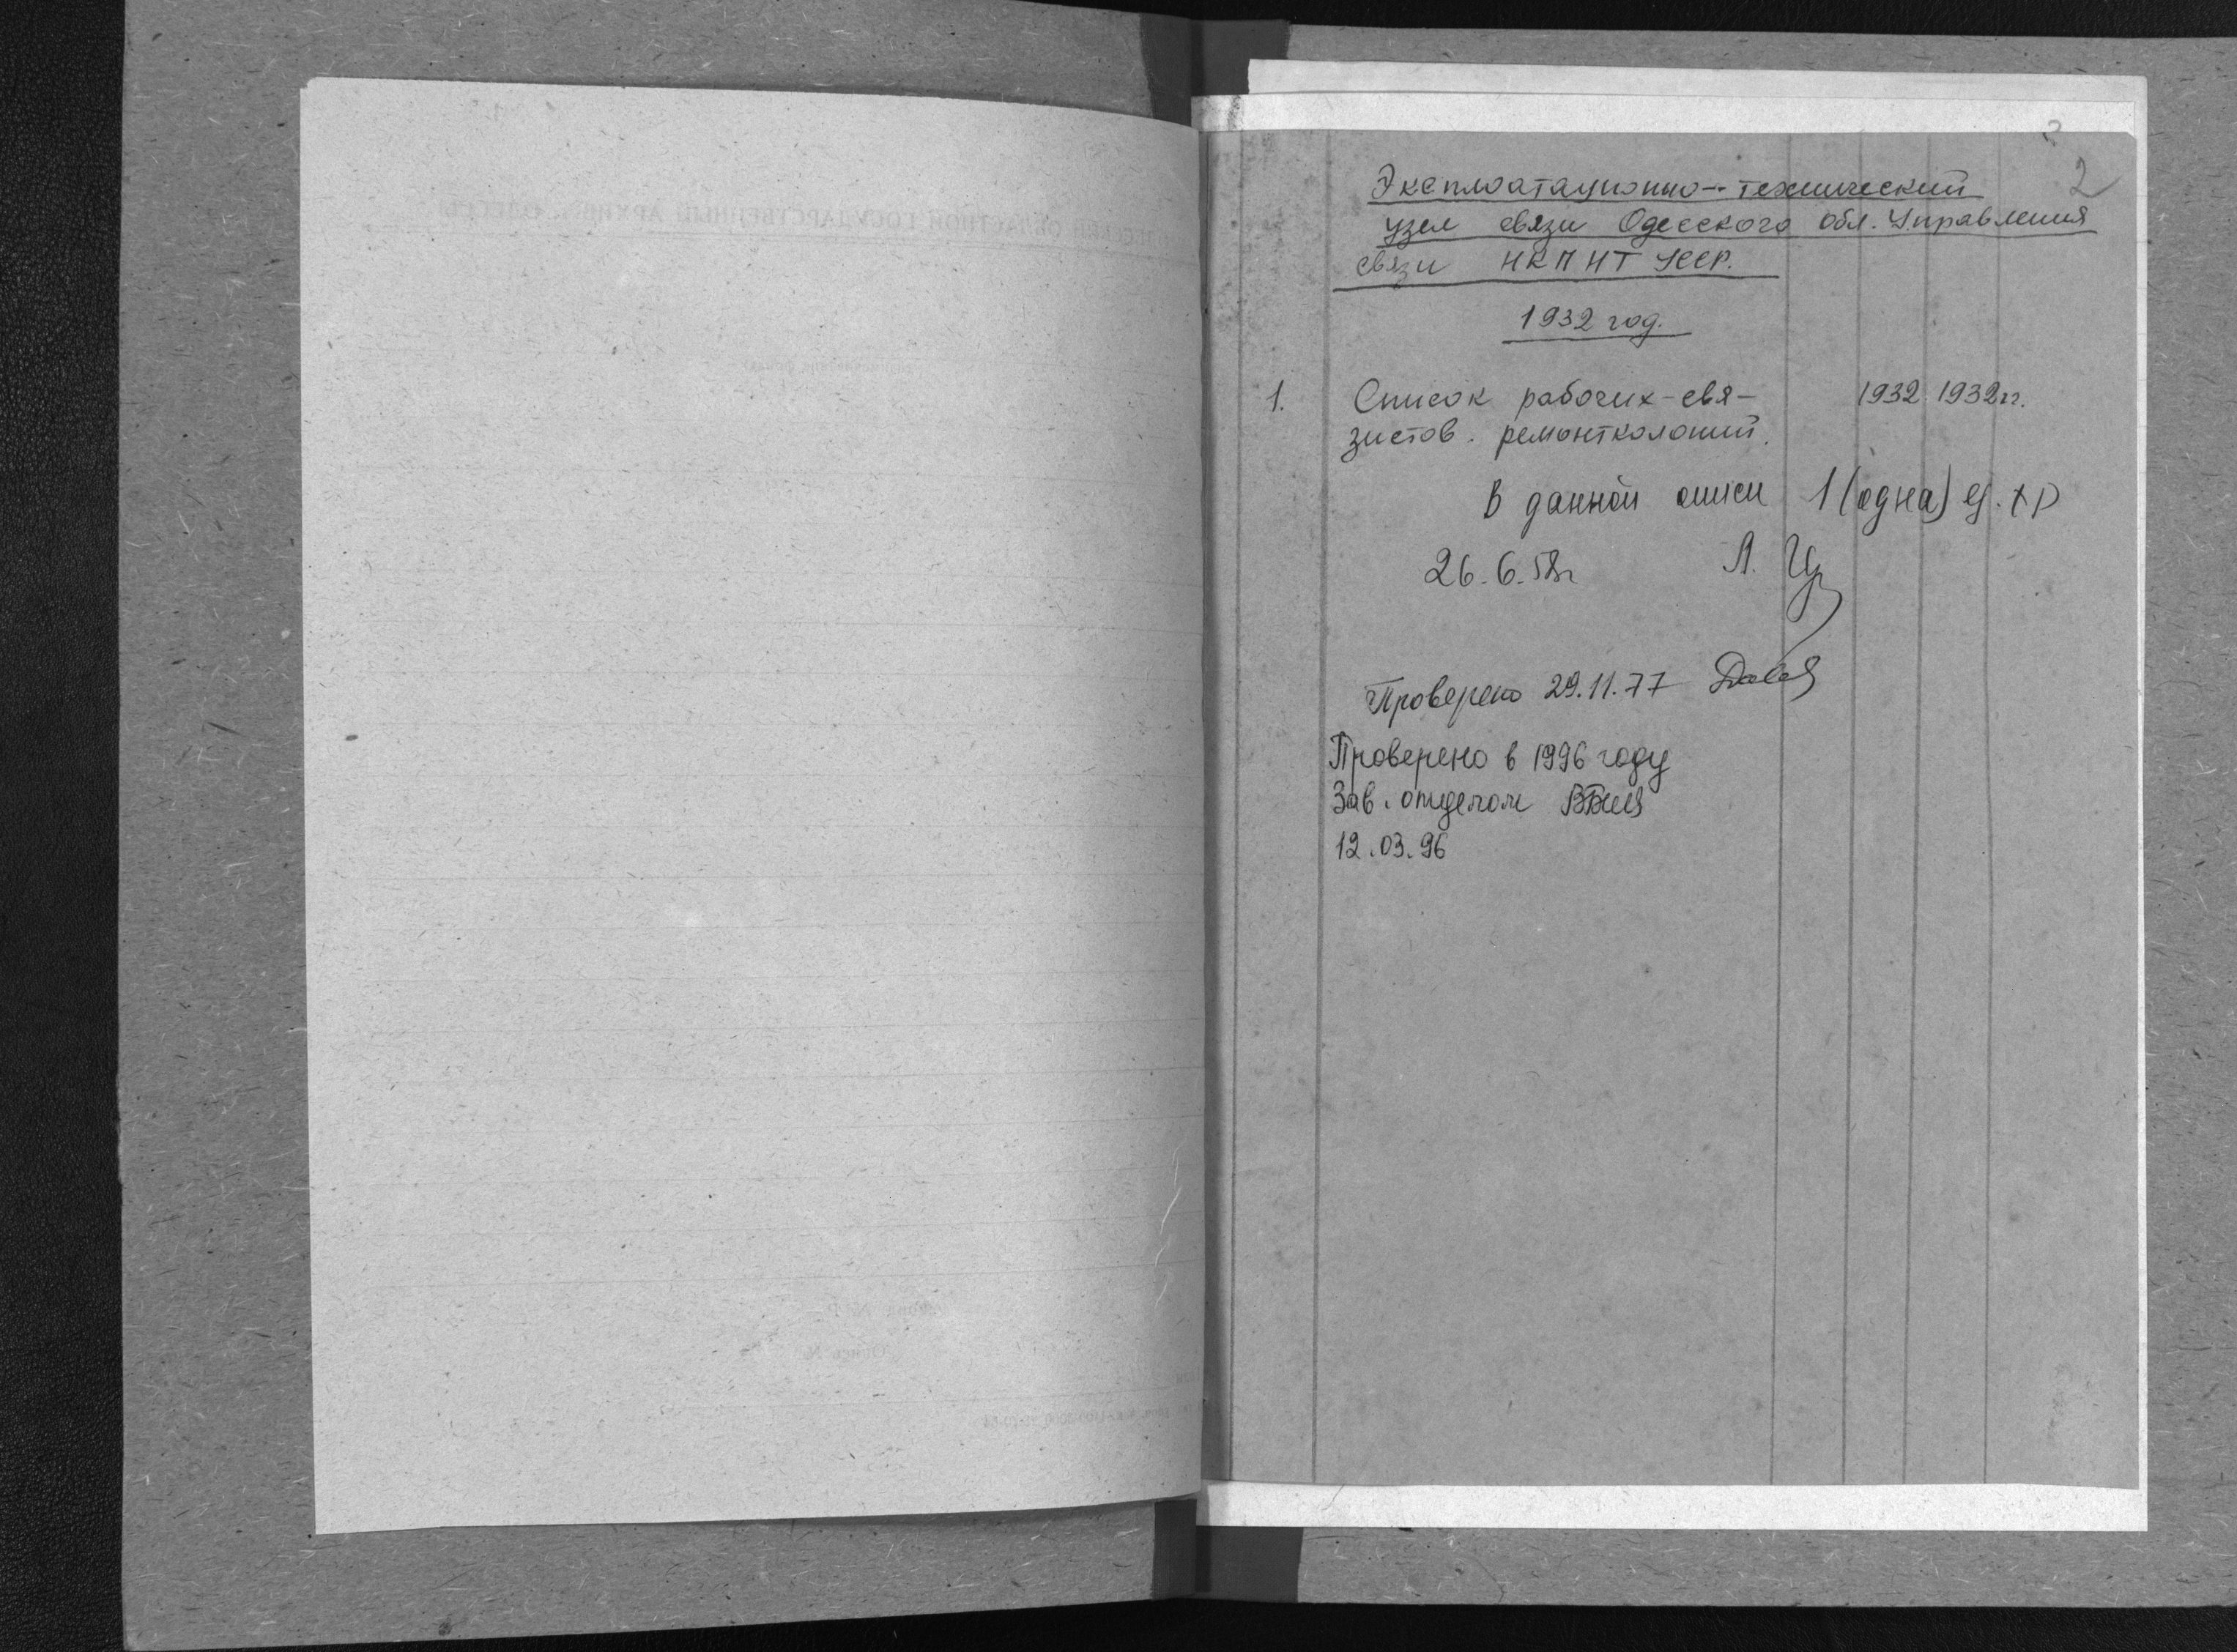 2
Эксплоатационно-технический
узел связи Одесского Обл. Управления
связи НКПиТ УССР.
1932 год.
1. Список рабочих-свя- 1932 1932 гг.
зистов. ремонтколоний.
В данной описи 1 (одна) ед. хр
26.6.58г Л.
Проверено 29.11.77
Проверено в 1996 году
Зав. отделом
12.03.96